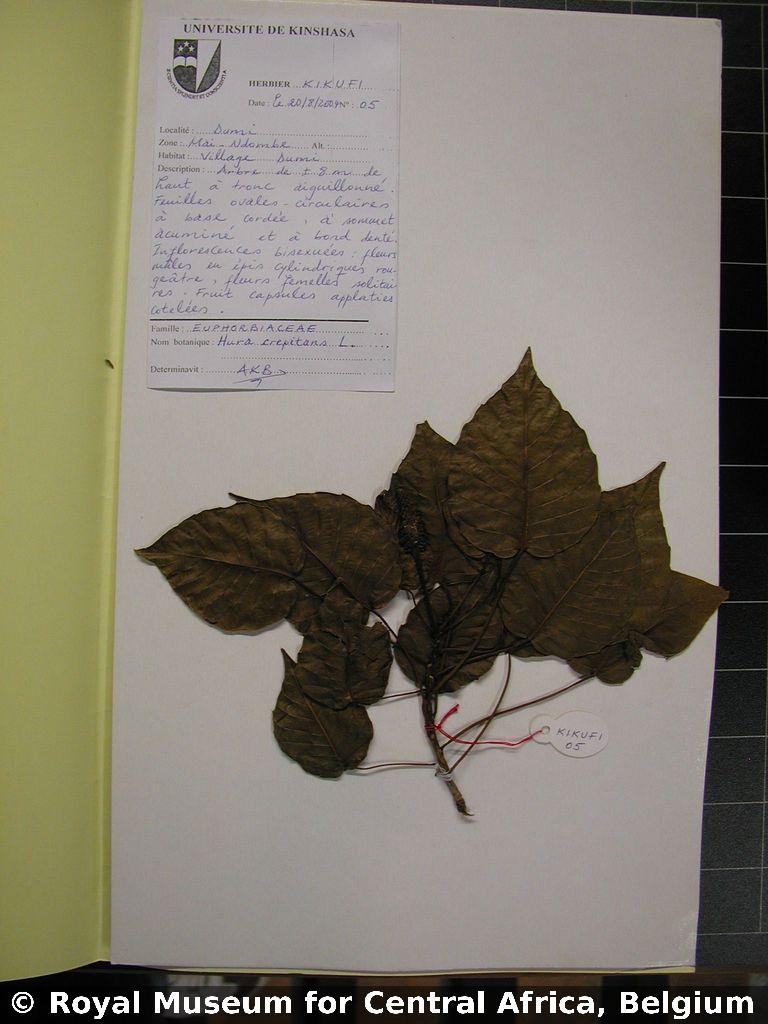 UNIVERSITE DE KINSHASA
HERBIER ... KIKUFI
Date : Le 20/8/2009 N° : 05
Localité : Dumi
Zone : Mai-Ndombe Alt. :
Habitat : Village Dumi
Description : Arbre de ± 8 m de
haut à tronc aiguillonné.
Feuilles ovales-circulaires
à base cordée, à sommet
acuminé et à bord denté.
Inflorescences bisexuées : fleurs
mâles en épis cylindriques rou-
geâtre, fleurs femelles solitai
res - Fruit capsules applaties
cotelées.
Famille : EUPHORBIACEAE
Nom botanique : Hura crepitans L.
Determinavit : AKB
KIKUFI
05
© Royal Museum for Central Africa, Belgium